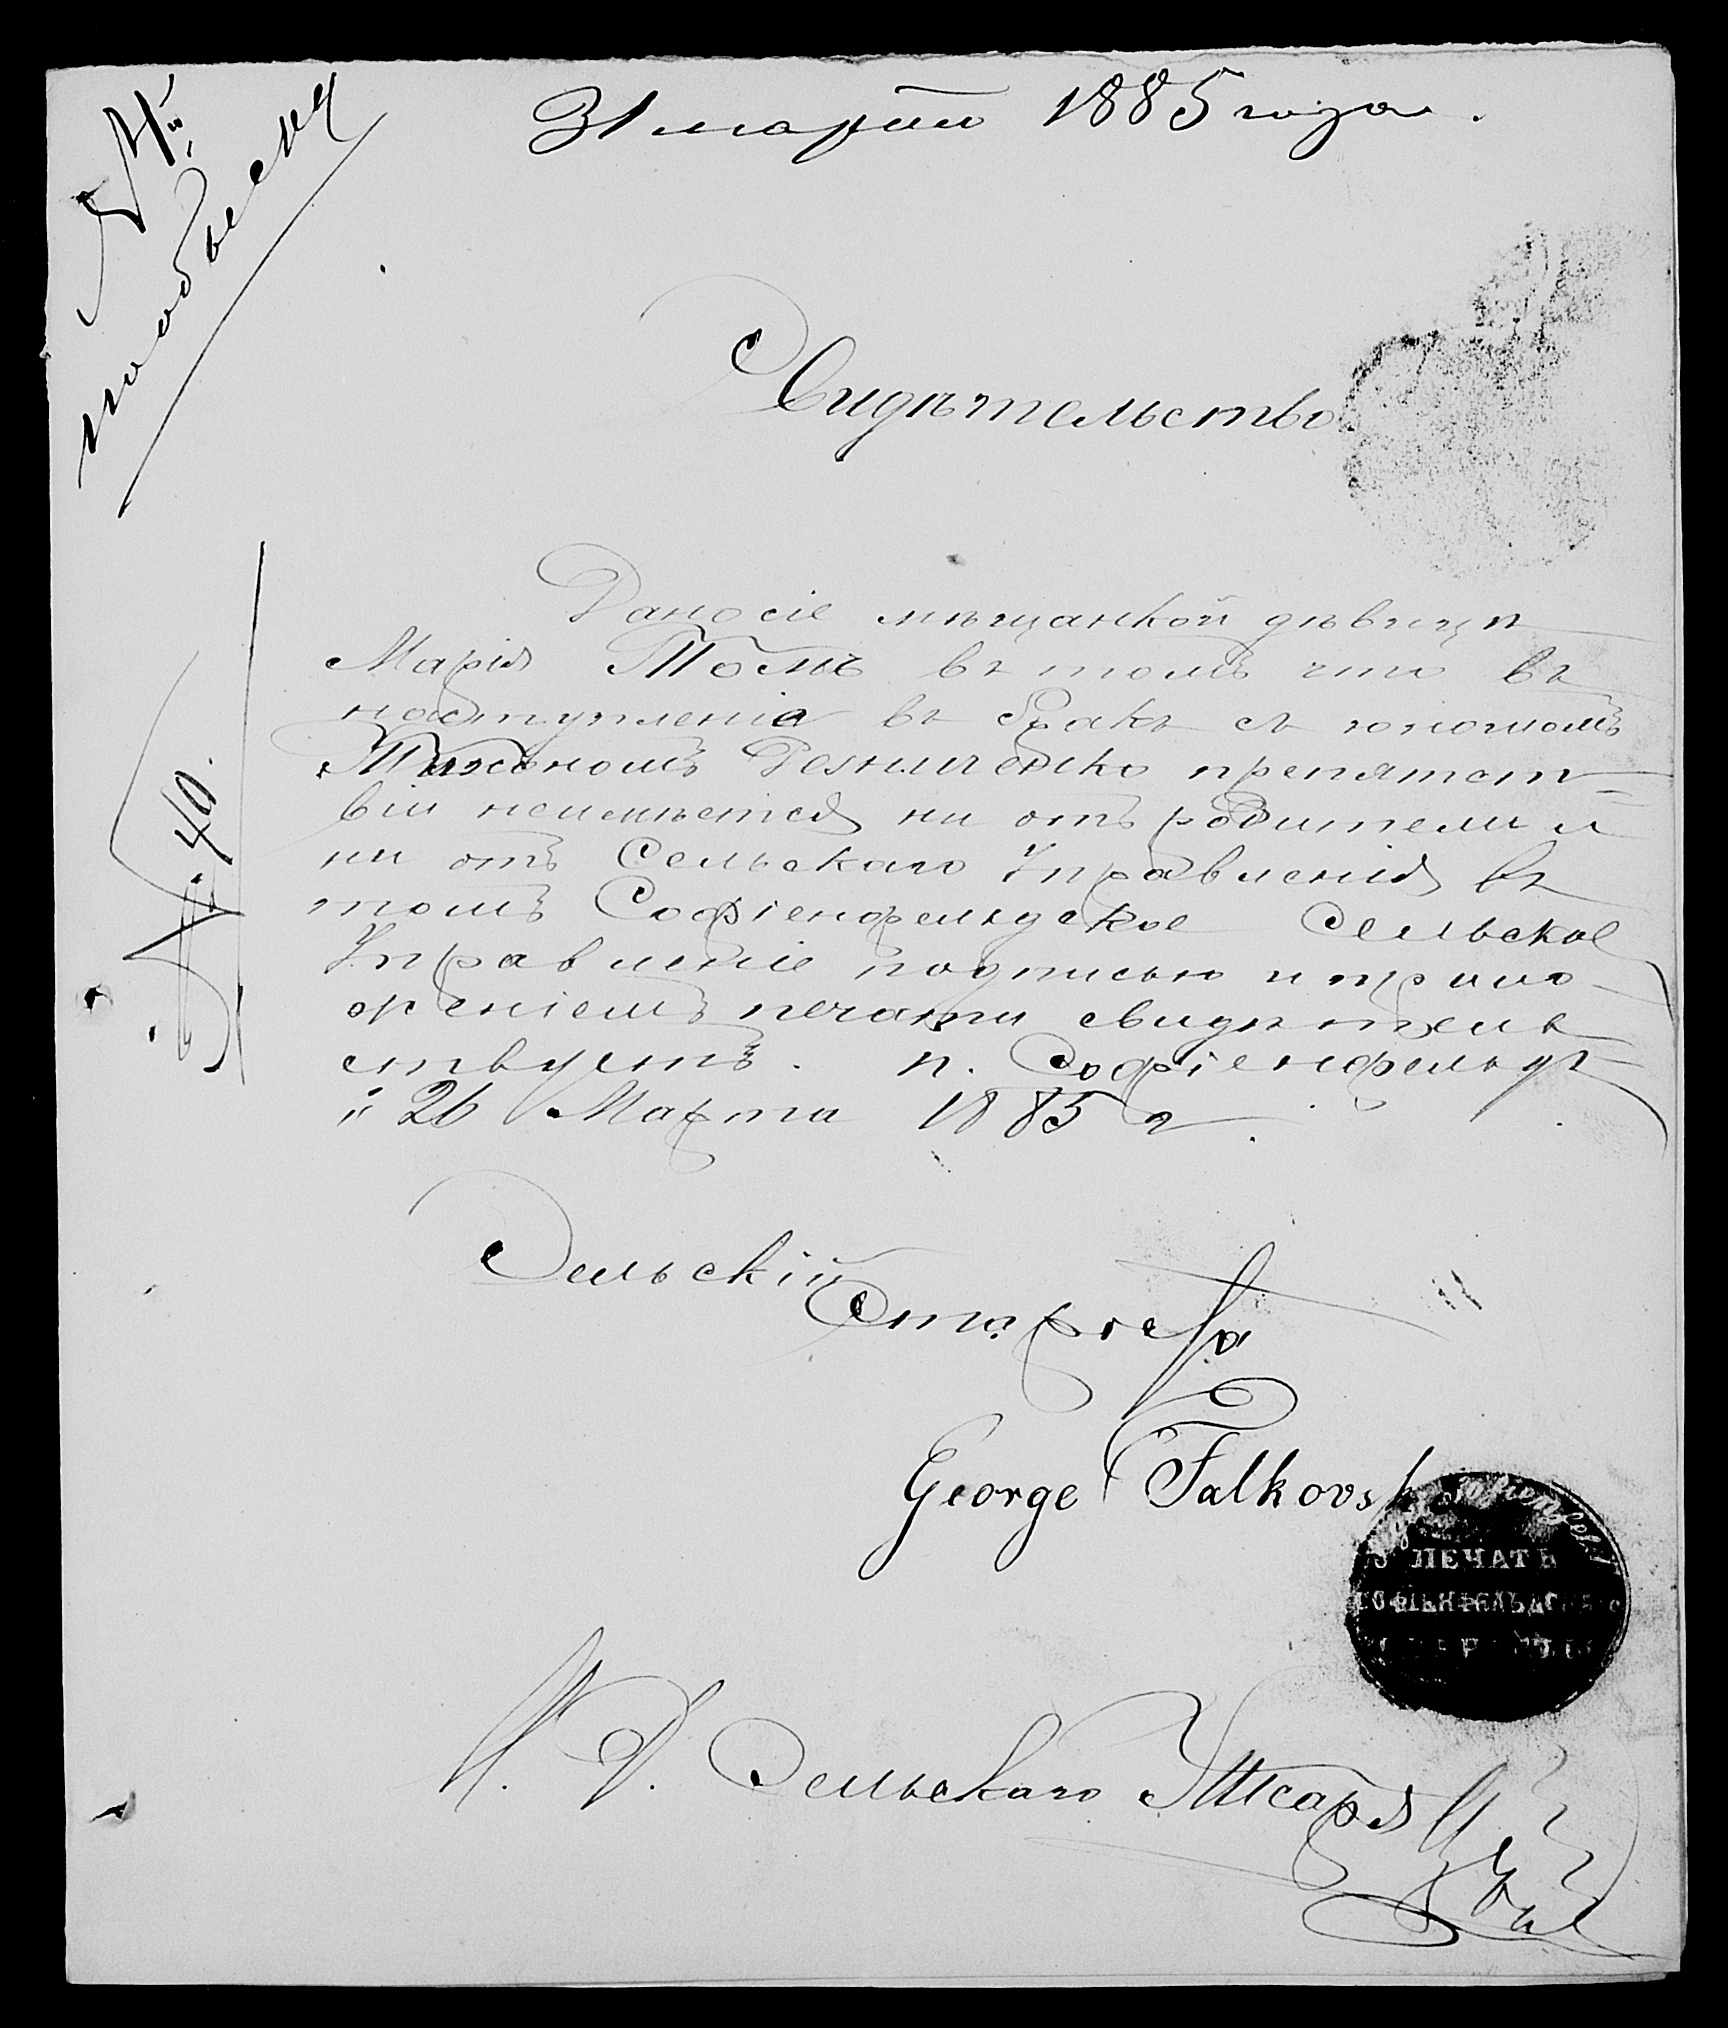 31 марта 1885 года.
№ 4й
по обыску
Свидѣтельство
Дано сіе мѣщанкой дѣвицѣ
Марія Томъ въ томъ что въ
наступленіа въ бракъ съ юношомъ
Тихономъ Резниченко препятст=
вій неимѣется ни отъ родителей
ни отъ Сельскаго Управленія въ
томъ Софіенфельдское Сельское
Управленіе подписью и прило
женіемъ печати свидѣтель
ствуетъ. п. Софіенфельдъ
"26 Марта 1885 г.
№ 40.
Сельскій
Староста
George Falkovsk
ПЕЧАТЬ
СОФІЕНФЕЛЬДСКАГО
И. Д. Сельскаго Писаря